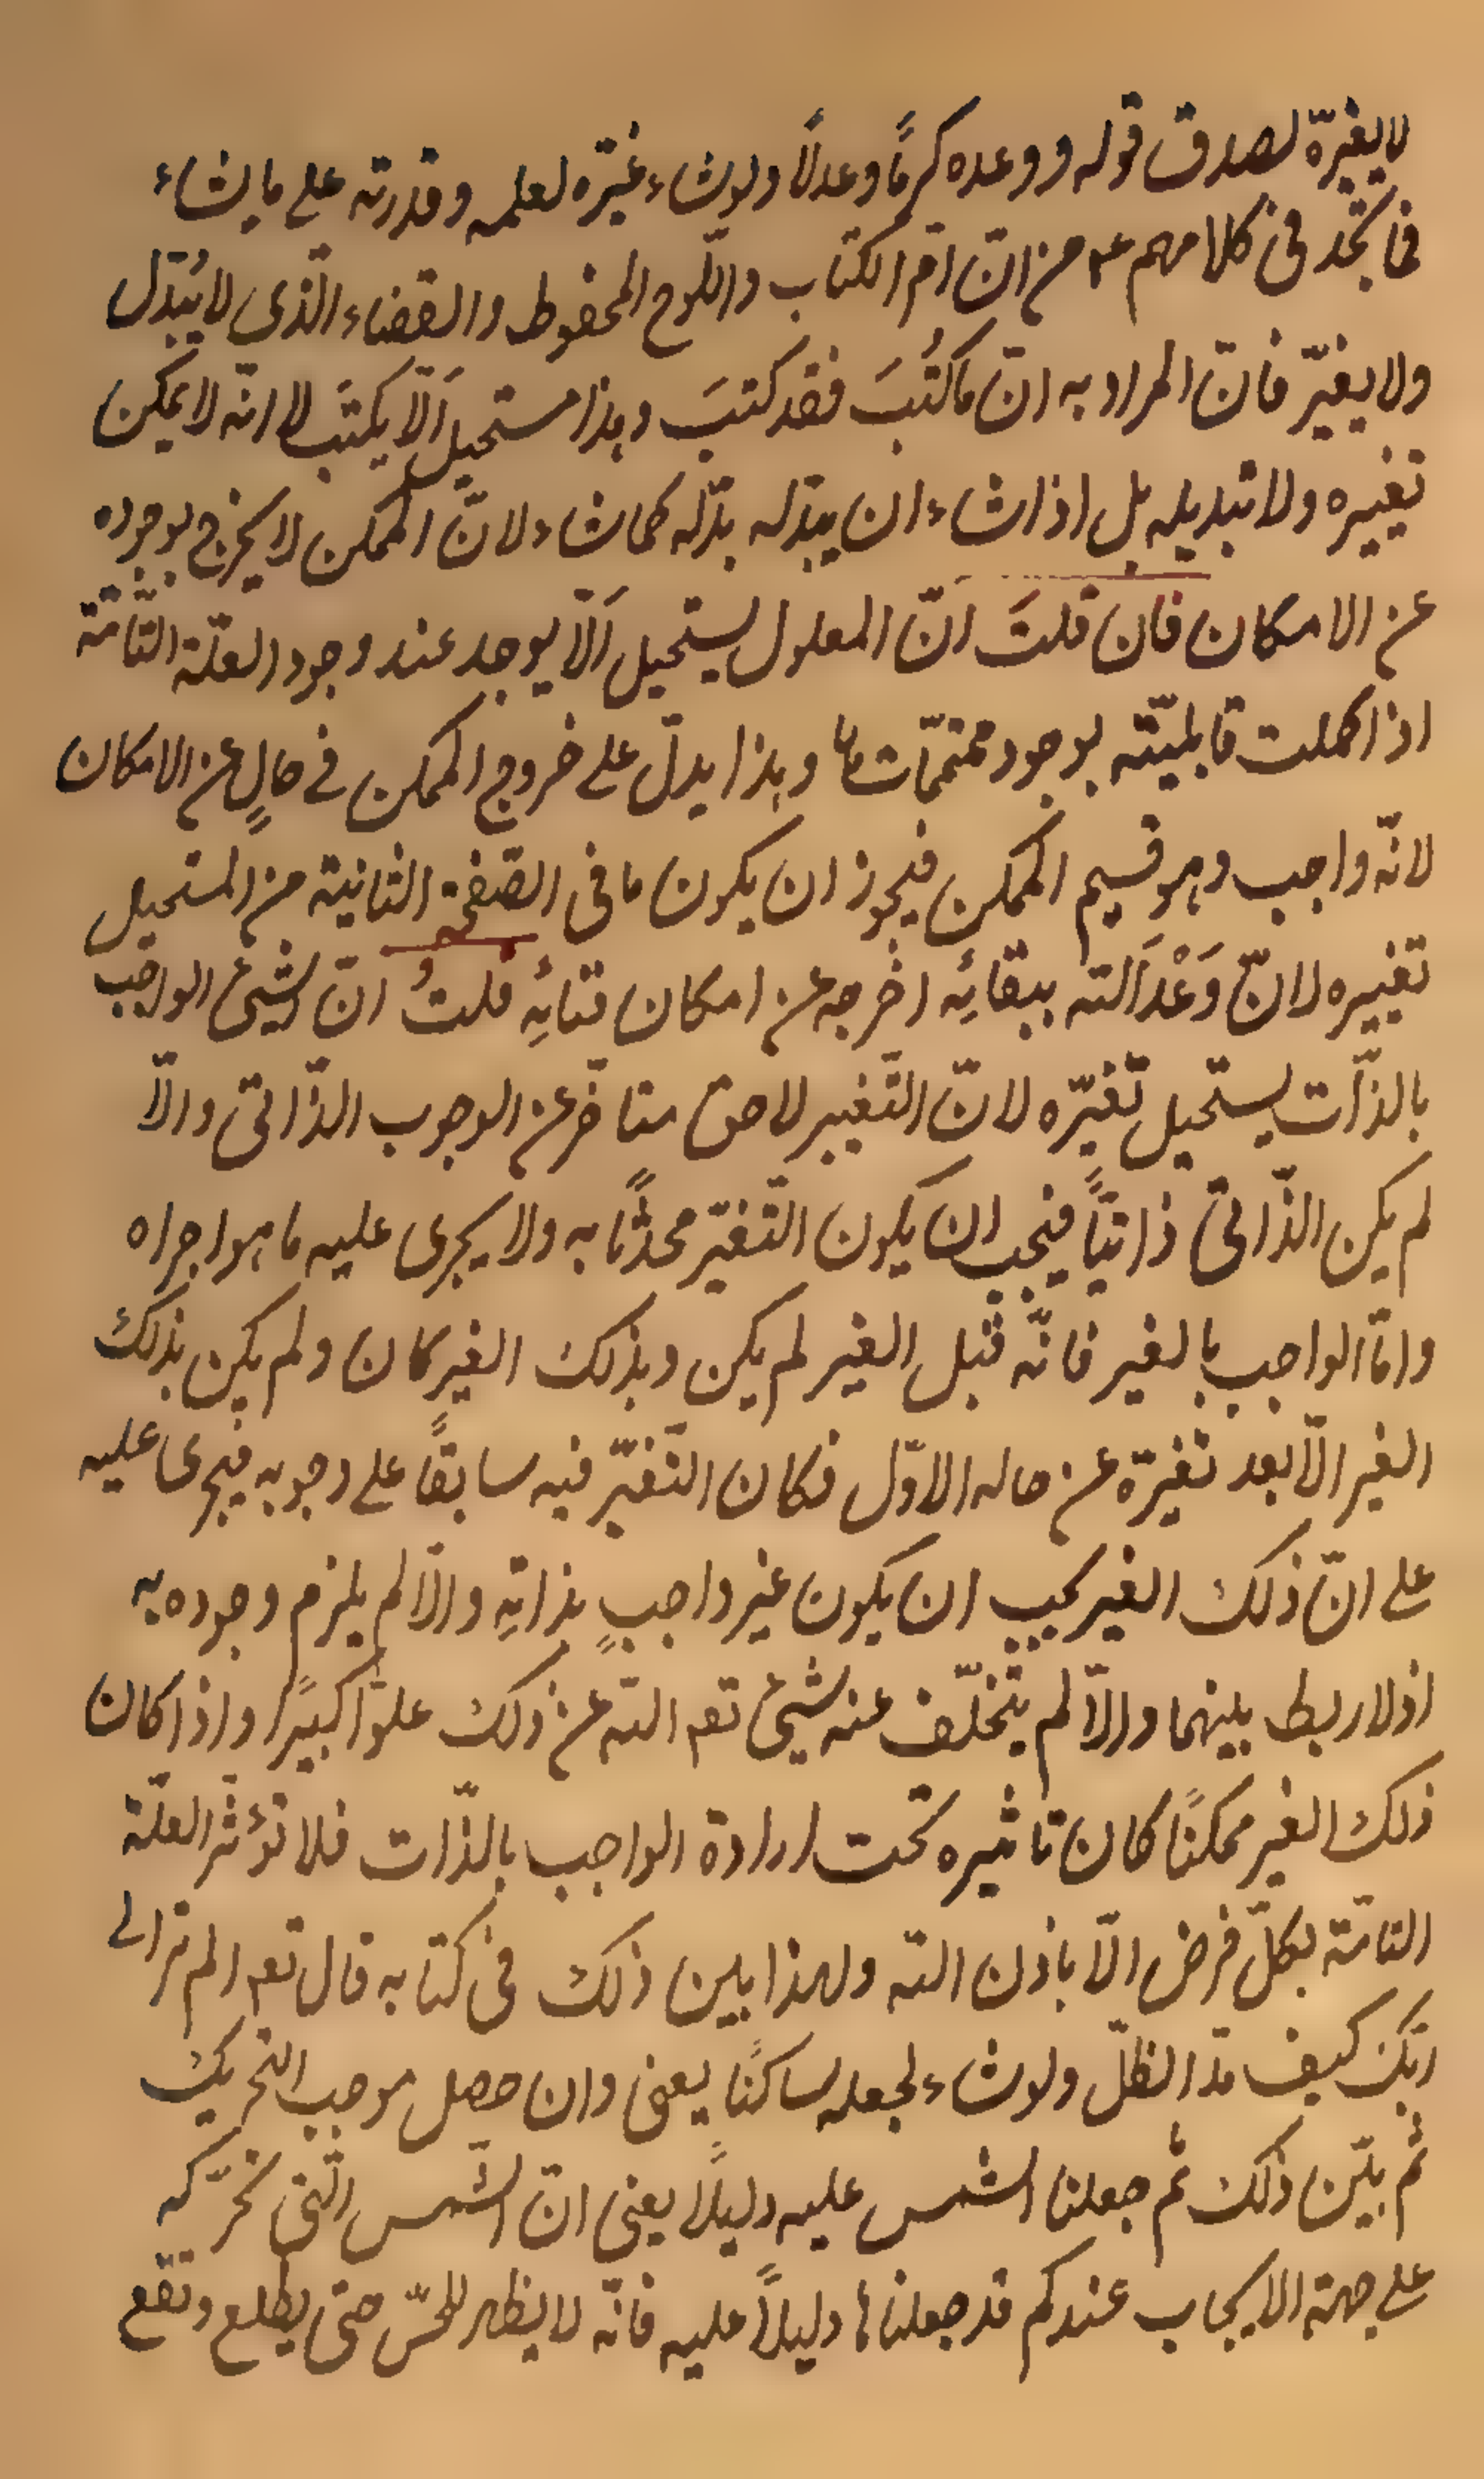 لا يغيّره لصدق قوله ووعده كرمًا وعدلًا ولوشاء غيّره لعلمه وقدرته على ما يشاء
فما تجد فى كلامهم ع۴ من انّ امّ الكتاب واللّوح المحفوظ والقضاء الّذى لا يُبَدّل
ولا يغيّر فانّ المراد به انّ ما كُتِبَ فقد كتبَ وهذا مستحيل اَلّا يكتَب لا انّه لا يمكن
تغييره ولا تبديله بل اذا شاء ان يبدّله بدّله كما شاء لانّ الممكن لا يخرج بوجوده
عن الامكان فان قلتَ انّ المعلول يستحيل اَلّا يوجد عند وجود العلّة التّامّة
اذا كملت قابليّته بوجود متمّماتها وهذا يدلّ على خروج الممكن فى حالٍ عن الامكان
لانّه واجب وهو قسيم الممكن فيجوز ان يكون ما فى الصّفحة الثانية من المستحيل
تغييره لانّ وَعْدَ الله ببقائِه اخرجه عن امكان فنائِه قلتُ انّ الشیئ الواجب
بالذّات يستحيل تغيّره لانّ التّغيير لاحق متاخّر عن الوجوب الذّاتى والّا
لم يكن الذّاتى ذاتيّاً فيجب ان يكون التّغيّر محدثًا به ولا يجرى عليه ما هو اجراه
وامّا الواجب بالغير فانّه قبل الغير لم يكن وبذلك الغير كان ولم يكن بذلك
الغير الّا بعد تغيّره عن حاله الاوّل فكان التّغيّر فيه سابقاً على وجوبه فيجرى عليه
على انّ ذلك الغير يجب ان يكون غير واجبٍ بذاتِهِ والّا لم يلزم وجوده به
اذ لا ربط بينهما والّا لم يتخلّف عنه شیئ تعه الله عن ذلك علوّاً كبيرًا واذا كان
ذلك الغير ممكنًا كان تاثيره تحت ارادة الواجب بالذّات فلا تؤثّر العلّة
التامّة بكلّ فرض الّا باذن الله ولهذا بين ذلك فى كتابه قال تعه الم تر الى
ربّك كيف مدّ الظلّ ولوشاء لجعله ساكنًا يعنى وان حصل موجب التحريك
ثم بيّن ذلك ثم جعلنا الشمس عليه دليلًا يعنى انّ الشّمس الّتى تحرّكه
على جهة الايجاب عندكم قد جعلناها دليلاً عليه فانّه لا يظهر للحسّ حتى يطلع وتقع